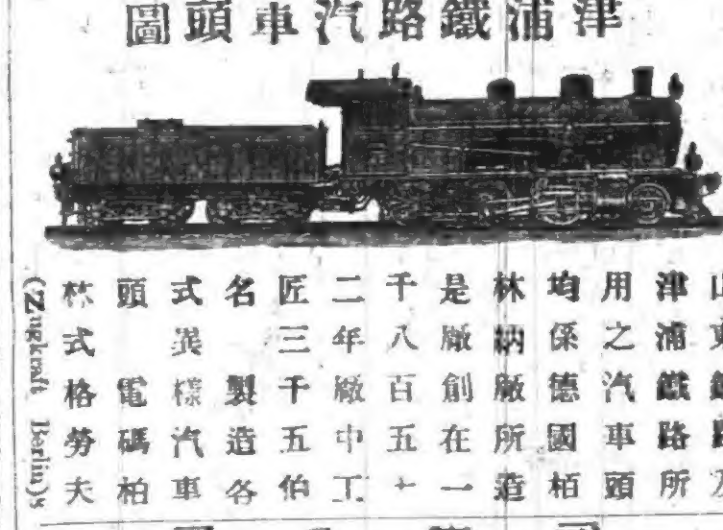 津浦鐵路汽車頭圖
山東鐵路及
津浦鐵路所
用之汽車頭
均係德國柏
林廠所造
是廠創在一
千八百五十
二年廠中工
匠三千五伯
名製造各
式異樣汽車
頭電碼柏
林式格勞夫
(Zugkraft Berlin)s